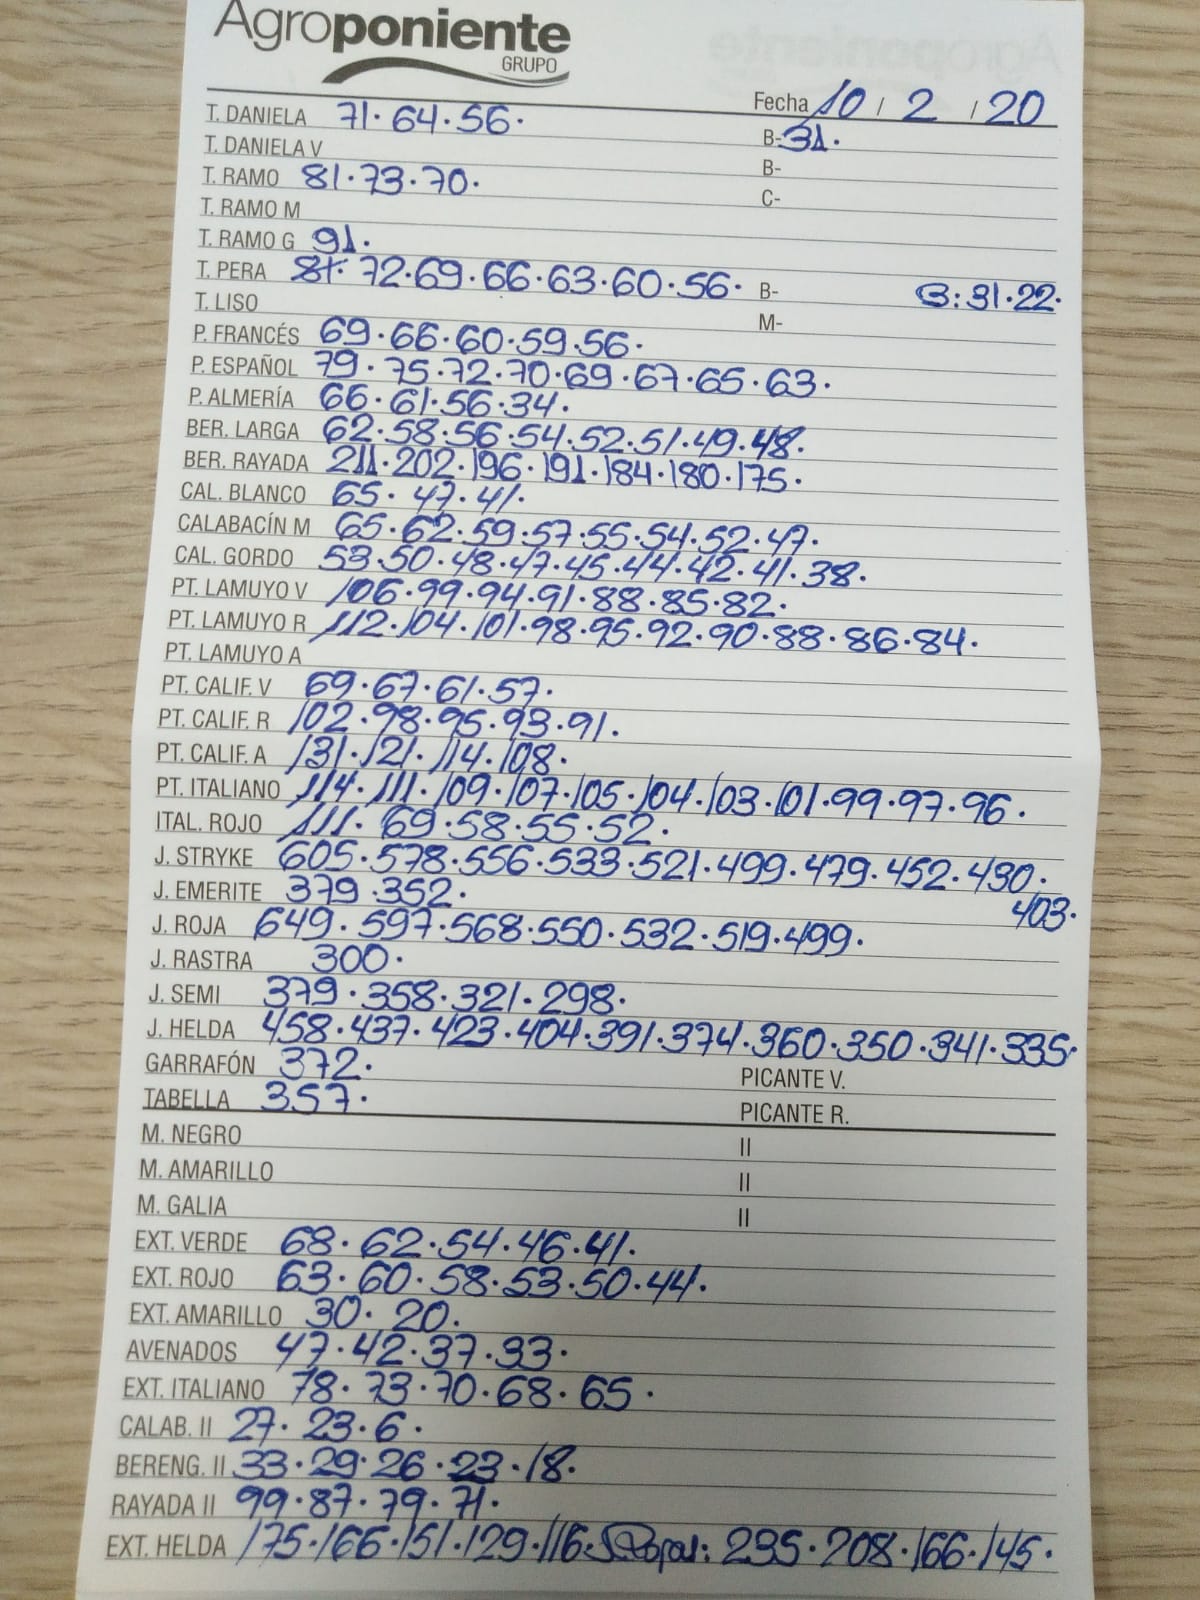 Agroponiente
GRUPO
Fecha 10 / 2 / 20
T. DANIELA 71. 64. 56. B- 31.
T. DANIELA V B-
T. RAMO 81. 73. 70. C-
T. RAMO M
T. RAMO G 91.
T. PERA 81. 72. 69. 66. 63. 60. 56. B- B: 31. 22.
T. LISO M-
P. FRANCÉS 69. 66. 60. 59. 56.
P. ESPAÑOL 79. 75. 72. 70. 69. 67. 65. 63.
P. ALMERÍA 66. 61. 56. 34.
BER. LARGA 62. 58. 56. 54. 52. 51. 49. 48.
BER. RAYADA 211. 202. 196. 191. 184. 180. 175.
CAL. BLANCO 65. 47. 41.
CALABACÍN M 65. 62. 59. 57. 55. 54. 52. 47.
CAL. GORDO 53. 50. 48. 47. 45. 44. 42. 41. 38.
PT. LAMUYO V 106. 99. 94. 91. 88. 85. 82.
PT. LAMUYO R 112. 104. 101. 98. 95. 92. 90. 88. 86. 84.
PT. LAMUYO A
PT. CALIF. V 69. 67. 61. 57.
PT. CALIF. R 102. 98. 95. 93. 91.
PT. CALIF. A 131. 121. 114. 108.
PT. ITALIANO 114. 111. 109. 107. 105. 104. 103. 101. 99. 97. 96.
ITAL. ROJO 111. 69. 58. 55. 52.
J. STRYKE 605. 578. 556. 533. 521. 499. 479. 452. 430.
403.
J. EMERITE 379. 352.
J. ROJA 649. 597. 568. 550. 532. 519. 499.
J. RASTRA 300.
J. SEMI 379. 358. 321. 298.
J. HELDA 458. 437. 423. 404. 391. 374. 360. 350. 341. 335.
GARRAFÓN 372. PICANTE V.
TABELLA 357. PICANTE R.
M. NEGRO II
M. AMARILLO II
M. GALIA II
EXT. VERDE 68. 62. 54. 46. 41.
EXT. ROJO 63. 60. 58. 53. 50. 44.
EXT. AMARILLO 30. 20.
AVENADOS 47. 42. 37. 33.
EXT. ITALIANO 78. 73. 70. 68. 65.
CALAB. II 27. 23. 6.
BERENG. II 33. 29. 26. 23. 18.
RAYADA II 99. 87. 79. 71.
EXT. HELDA 175. 166. 151. 129. 116. 235. 208. 166. 145.